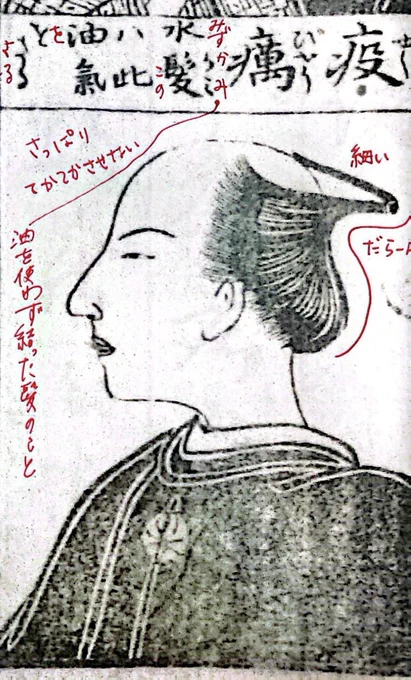 疫
癘
みずかみ
水髪
この
ハ此
油氣
を
と
さっぱり
てかてかさせない
油を使わず結った髪のこと
細い
だらーん